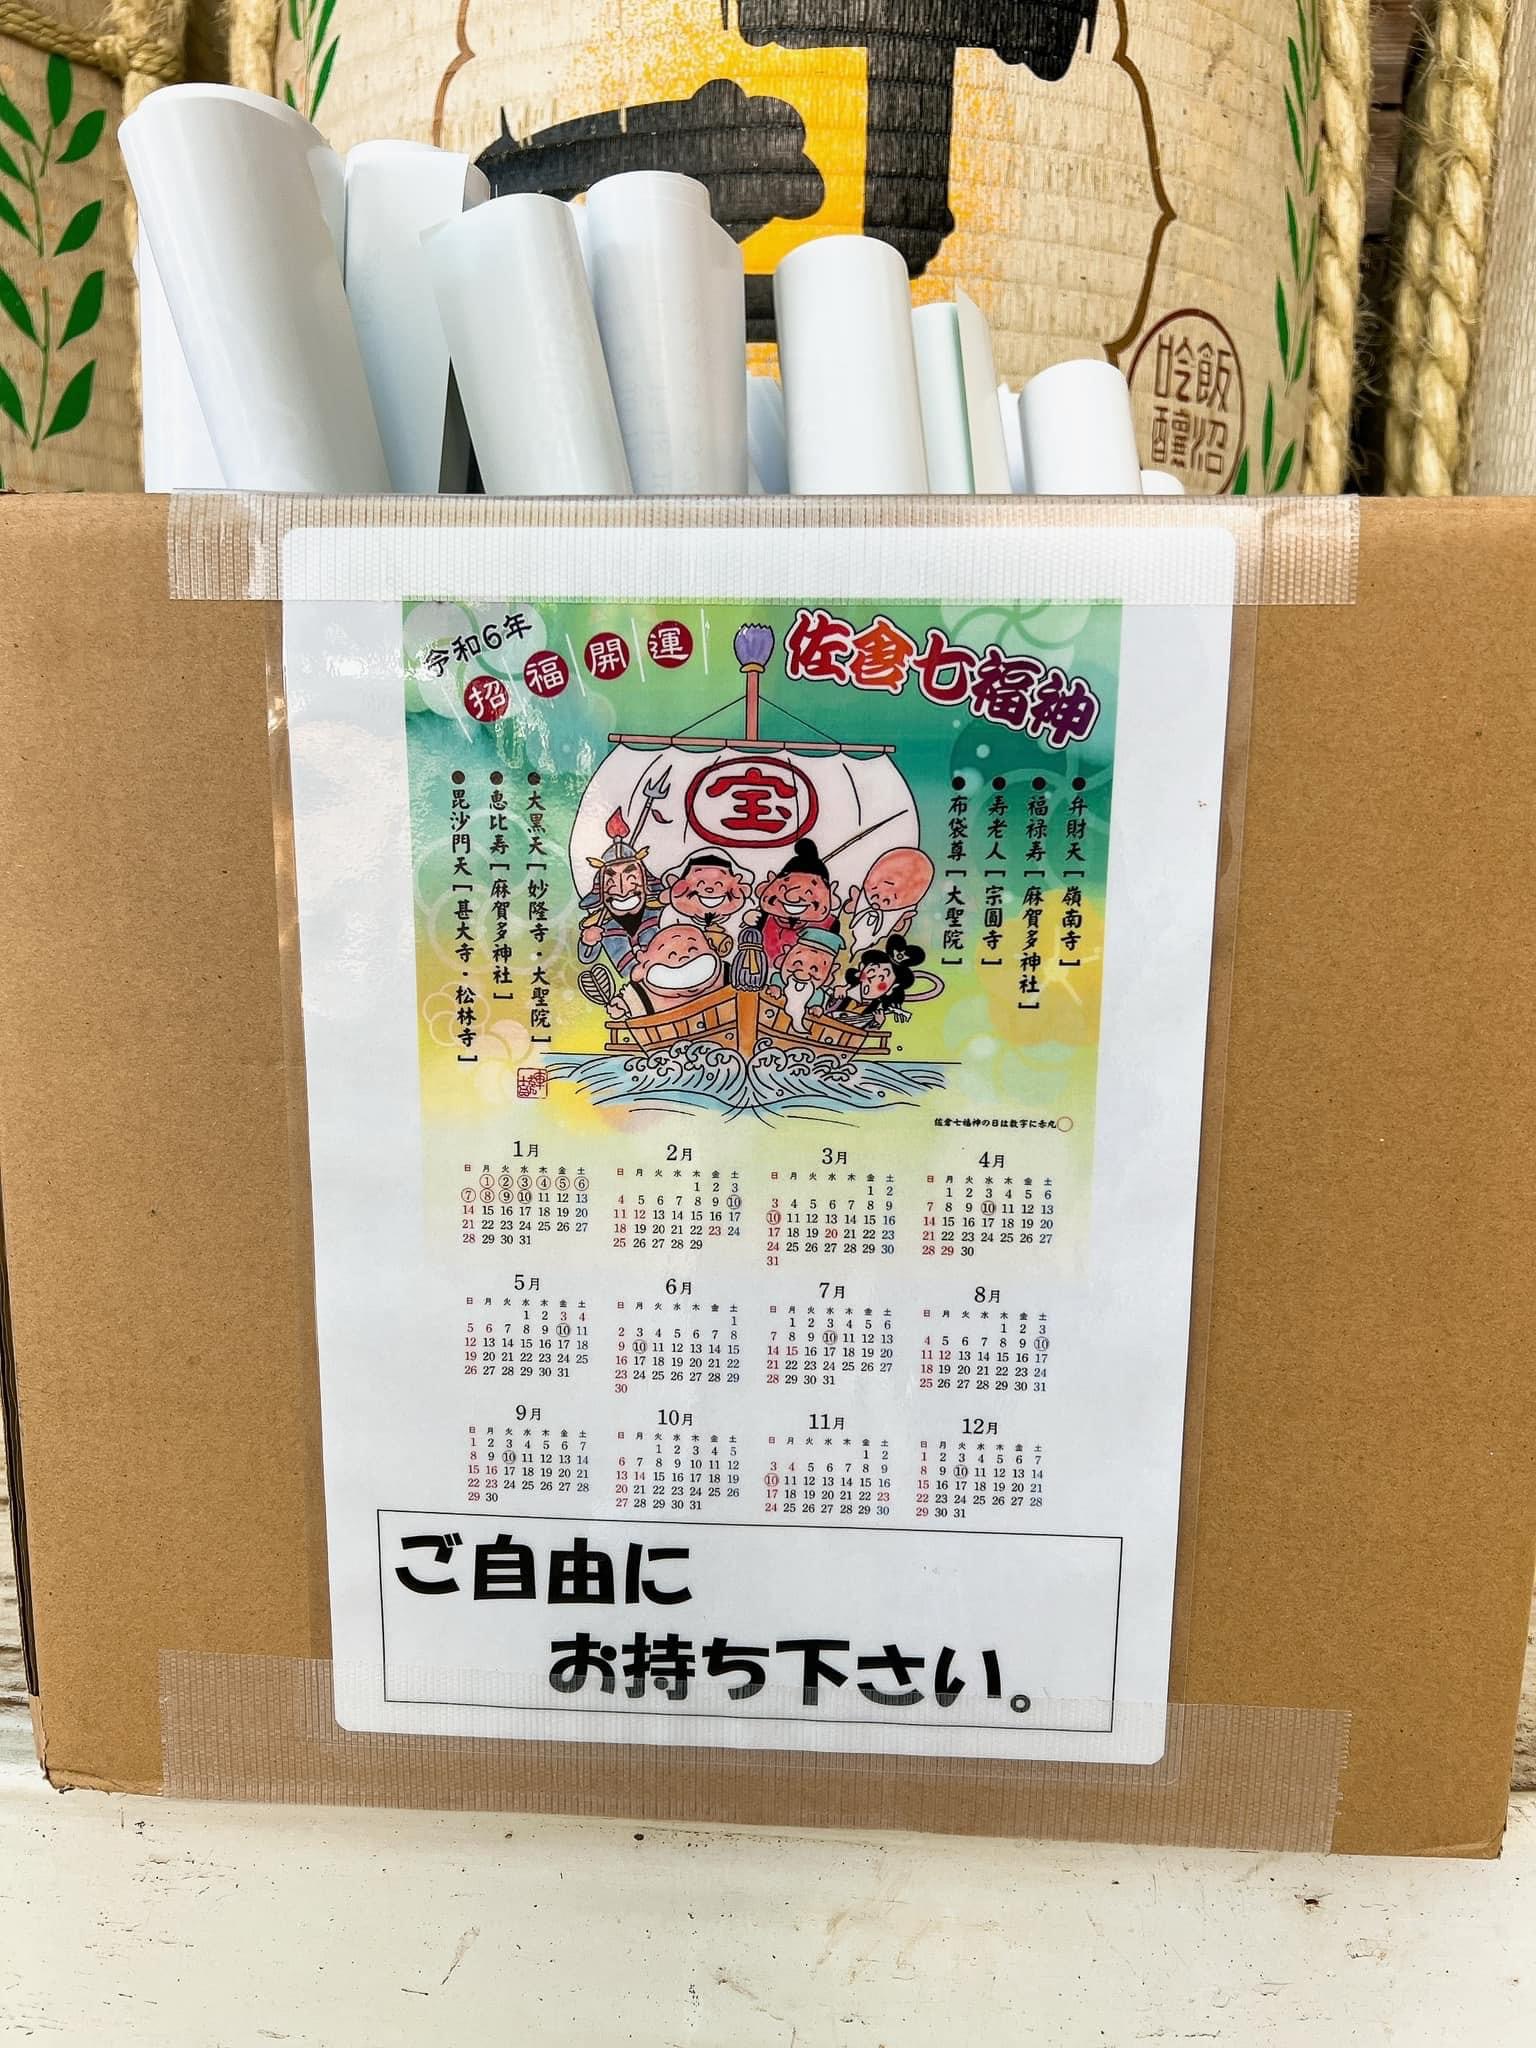 飯沼
吟醸
令和6年
招福開運
佐倉七福神
宝
●弁財天[嶺南寺]
●福禄寿[麻賀多神社]
●寿老人[宗圓寺]
●布袋尊[大聖院]
●大黒天[妙隆寺・大聖院]
●恵比寿[麻賀多神社]
●毘沙門天[甚大寺・松林寺]
佐倉七福神の日は数字に赤丸○
1月
日 月 火 水 木 金 土
1 2 3 4 5 6
7 8 9 10 11 12 13
14 15 16 17 18 19 20
21 22 23 24 25 26 27
28 29 30 31
2月
日 月 火 水 木 金 土
1 2 3
4 5 6 7 8 9 10
11 12 13 14 15 16 17
18 19 20 21 22 23 24
25 26 27 28 29
3月
日 月 火 水 木 金 土
1 2
3 4 5 6 7 8 9
10 11 12 13 14 15 16
17 18 19 20 21 22 23
24 25 26 27 28 29 30
31
4月
日 月 火 水 木 金 土
1 2 3 4 5 6
7 8 9 10 11 12 13
14 15 16 17 18 19 20
21 22 23 24 25 26 27
28 29 30
5月
日 月 火 水 木 金 土
1 2 3 4
5 6 7 8 9 10 11
12 13 14 15 16 17 18
19 20 21 22 23 24 25
26 27 28 29 30 31
6月
日 月 火 水 木 金 土
1
2 3 4 5 6 7 8
9 10 11 12 13 14 15
16 17 18 19 20 21 22
23 24 25 26 27 28 29
30
7月
日 月 火 水 木 金 土
1 2 3 4 5 6
7 8 9 10 11 12 13
14 15 16 17 18 19 20
21 22 23 24 25 26 27
28 29 30 31
8月
日 月 火 水 木 金 土
1 2 3
4 5 6 7 8 9 10
11 12 13 14 15 16 17
18 19 20 21 22 23 24
25 26 27 28 29 30 31
9月
日 月 火 水 木 金 土
1 2 3 4 5 6 7
8 9 10 11 12 13 14
15 16 17 18 19 20 21
22 23 24 25 26 27 28
29 30
10月
日 月 火 水 木 金 土
1 2 3 4 5
6 7 8 9 10 11 12
13 14 15 16 17 18 19
20 21 22 23 24 25 26
27 28 29 30 31
11月
日 月 火 水 木 金 土
1 2
3 4 5 6 7 8 9
10 11 12 13 14 15 16
17 18 19 20 21 22 23
24 25 26 27 28 29 30
12月
日 月 火 水 木 金 土
1 2 3 4 5 6 7
8 9 10 11 12 13 14
15 16 17 18 19 20 21
22 23 24 25 26 27 28
29 30 31
ご自由に
お持ち下さい。